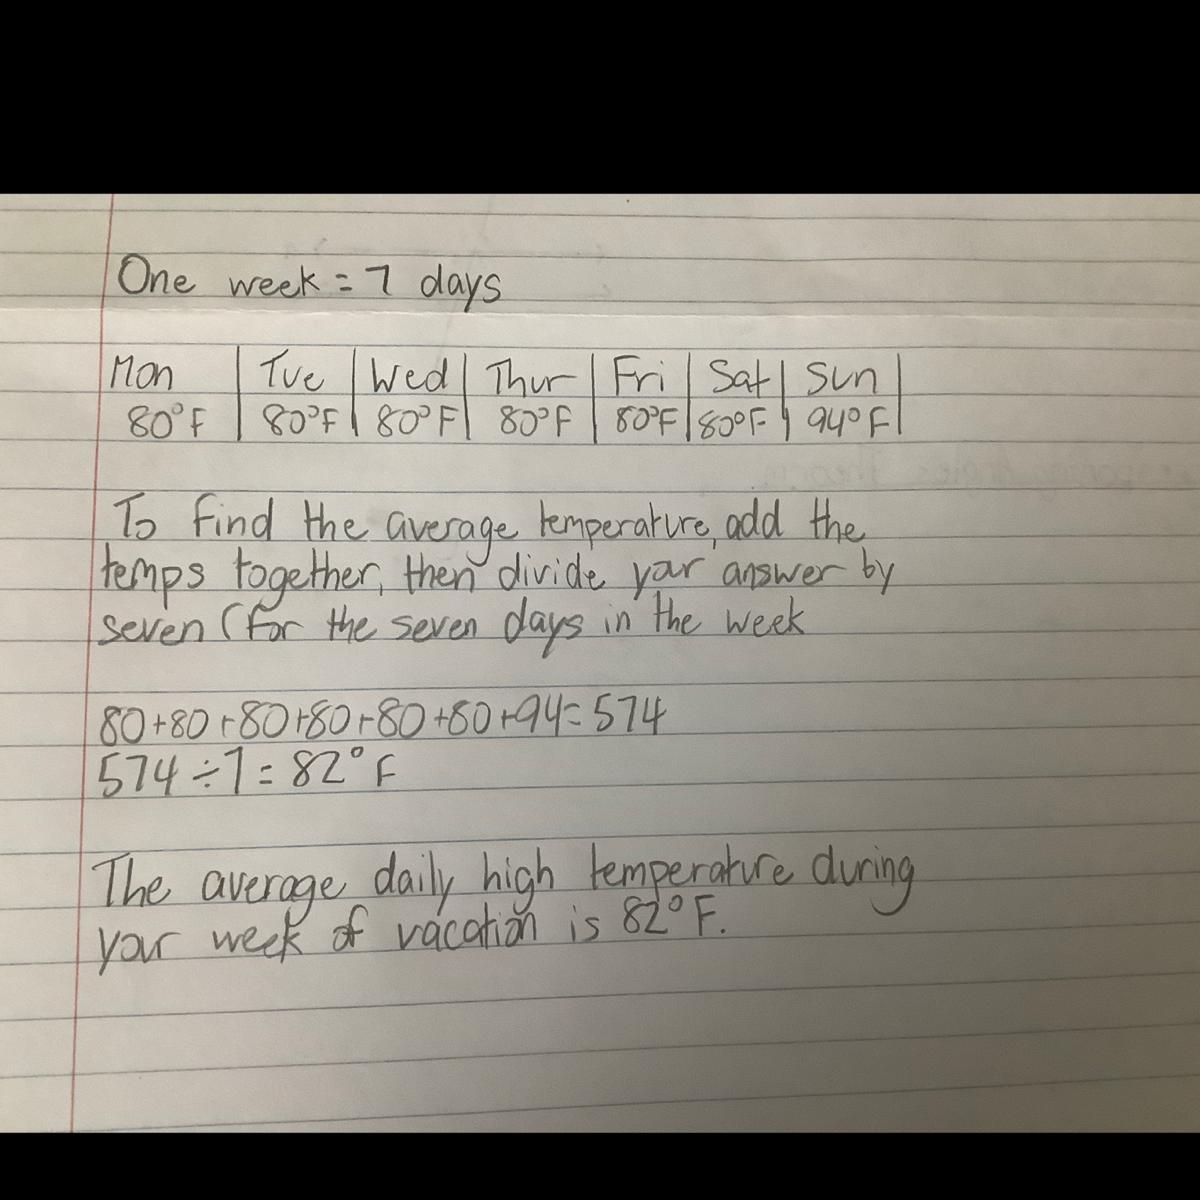 One week = 7 days
Mon | Tue | Wed | Thur | Fri | Sat | Sun |
80°F | 80°F | 80°F | 80°F | 80°F | 80°F | 94°F |
To find the average temperature, add the
temps together, then divide your answer by
seven (for the seven days in the week
80+80+80+80+80+80+94=574
574÷7=82°F
The average daily high temperature during
your week of vacation is 82°F.